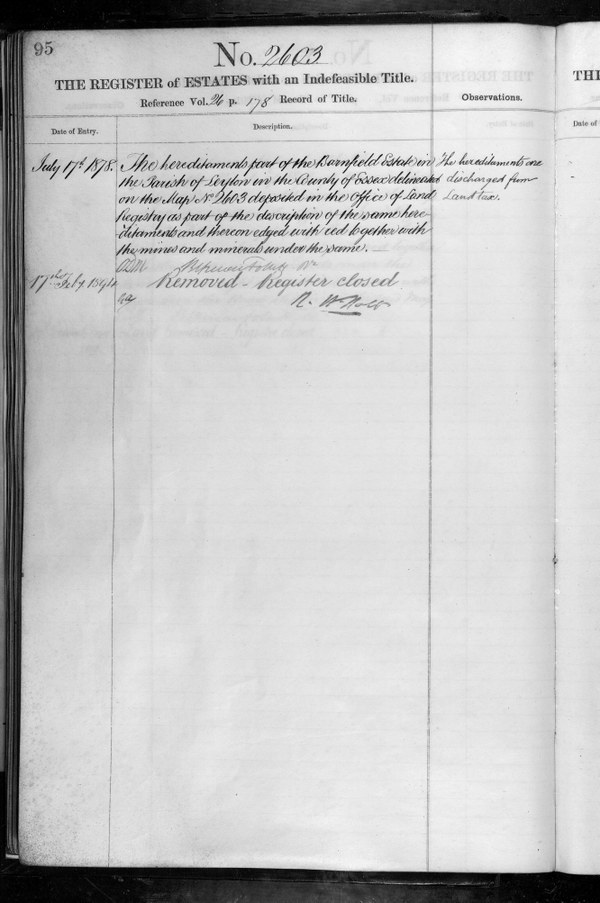 95
No. 2603
THE REGISTER of ESTATES with an Indefeasible Title.
Reference Vol. 26 p. 178 Record of Title.
Observations.
Date of Entry.
Description.
July 17th 1878.
The hereditaments part of the Barnfield Estate in
the Parish of Leyton in the County of Essex delineated
on the Map No. 2603 deposited in the Office of Land
Registry as part of the description of the same here-
ditaments and thereon edged with red together with
the mines and minerals under the same.
The hereditaments are
discharged from
Land tax.
17th Feby 1894
Removed - Register closed
R. W. Holt
THE
Date of